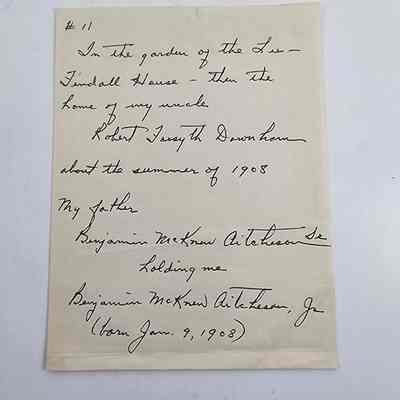 # 11
In the garden of the Lee-
Fendall House - then the
home of my uncle
Robert Forsyth Downham
about the summer of 1908
My father
Benjamin McKnew Aitcheson Sr
holding me
Benjamin McKnew Aitcheson, Jr
(born Jan. 9, 1908)